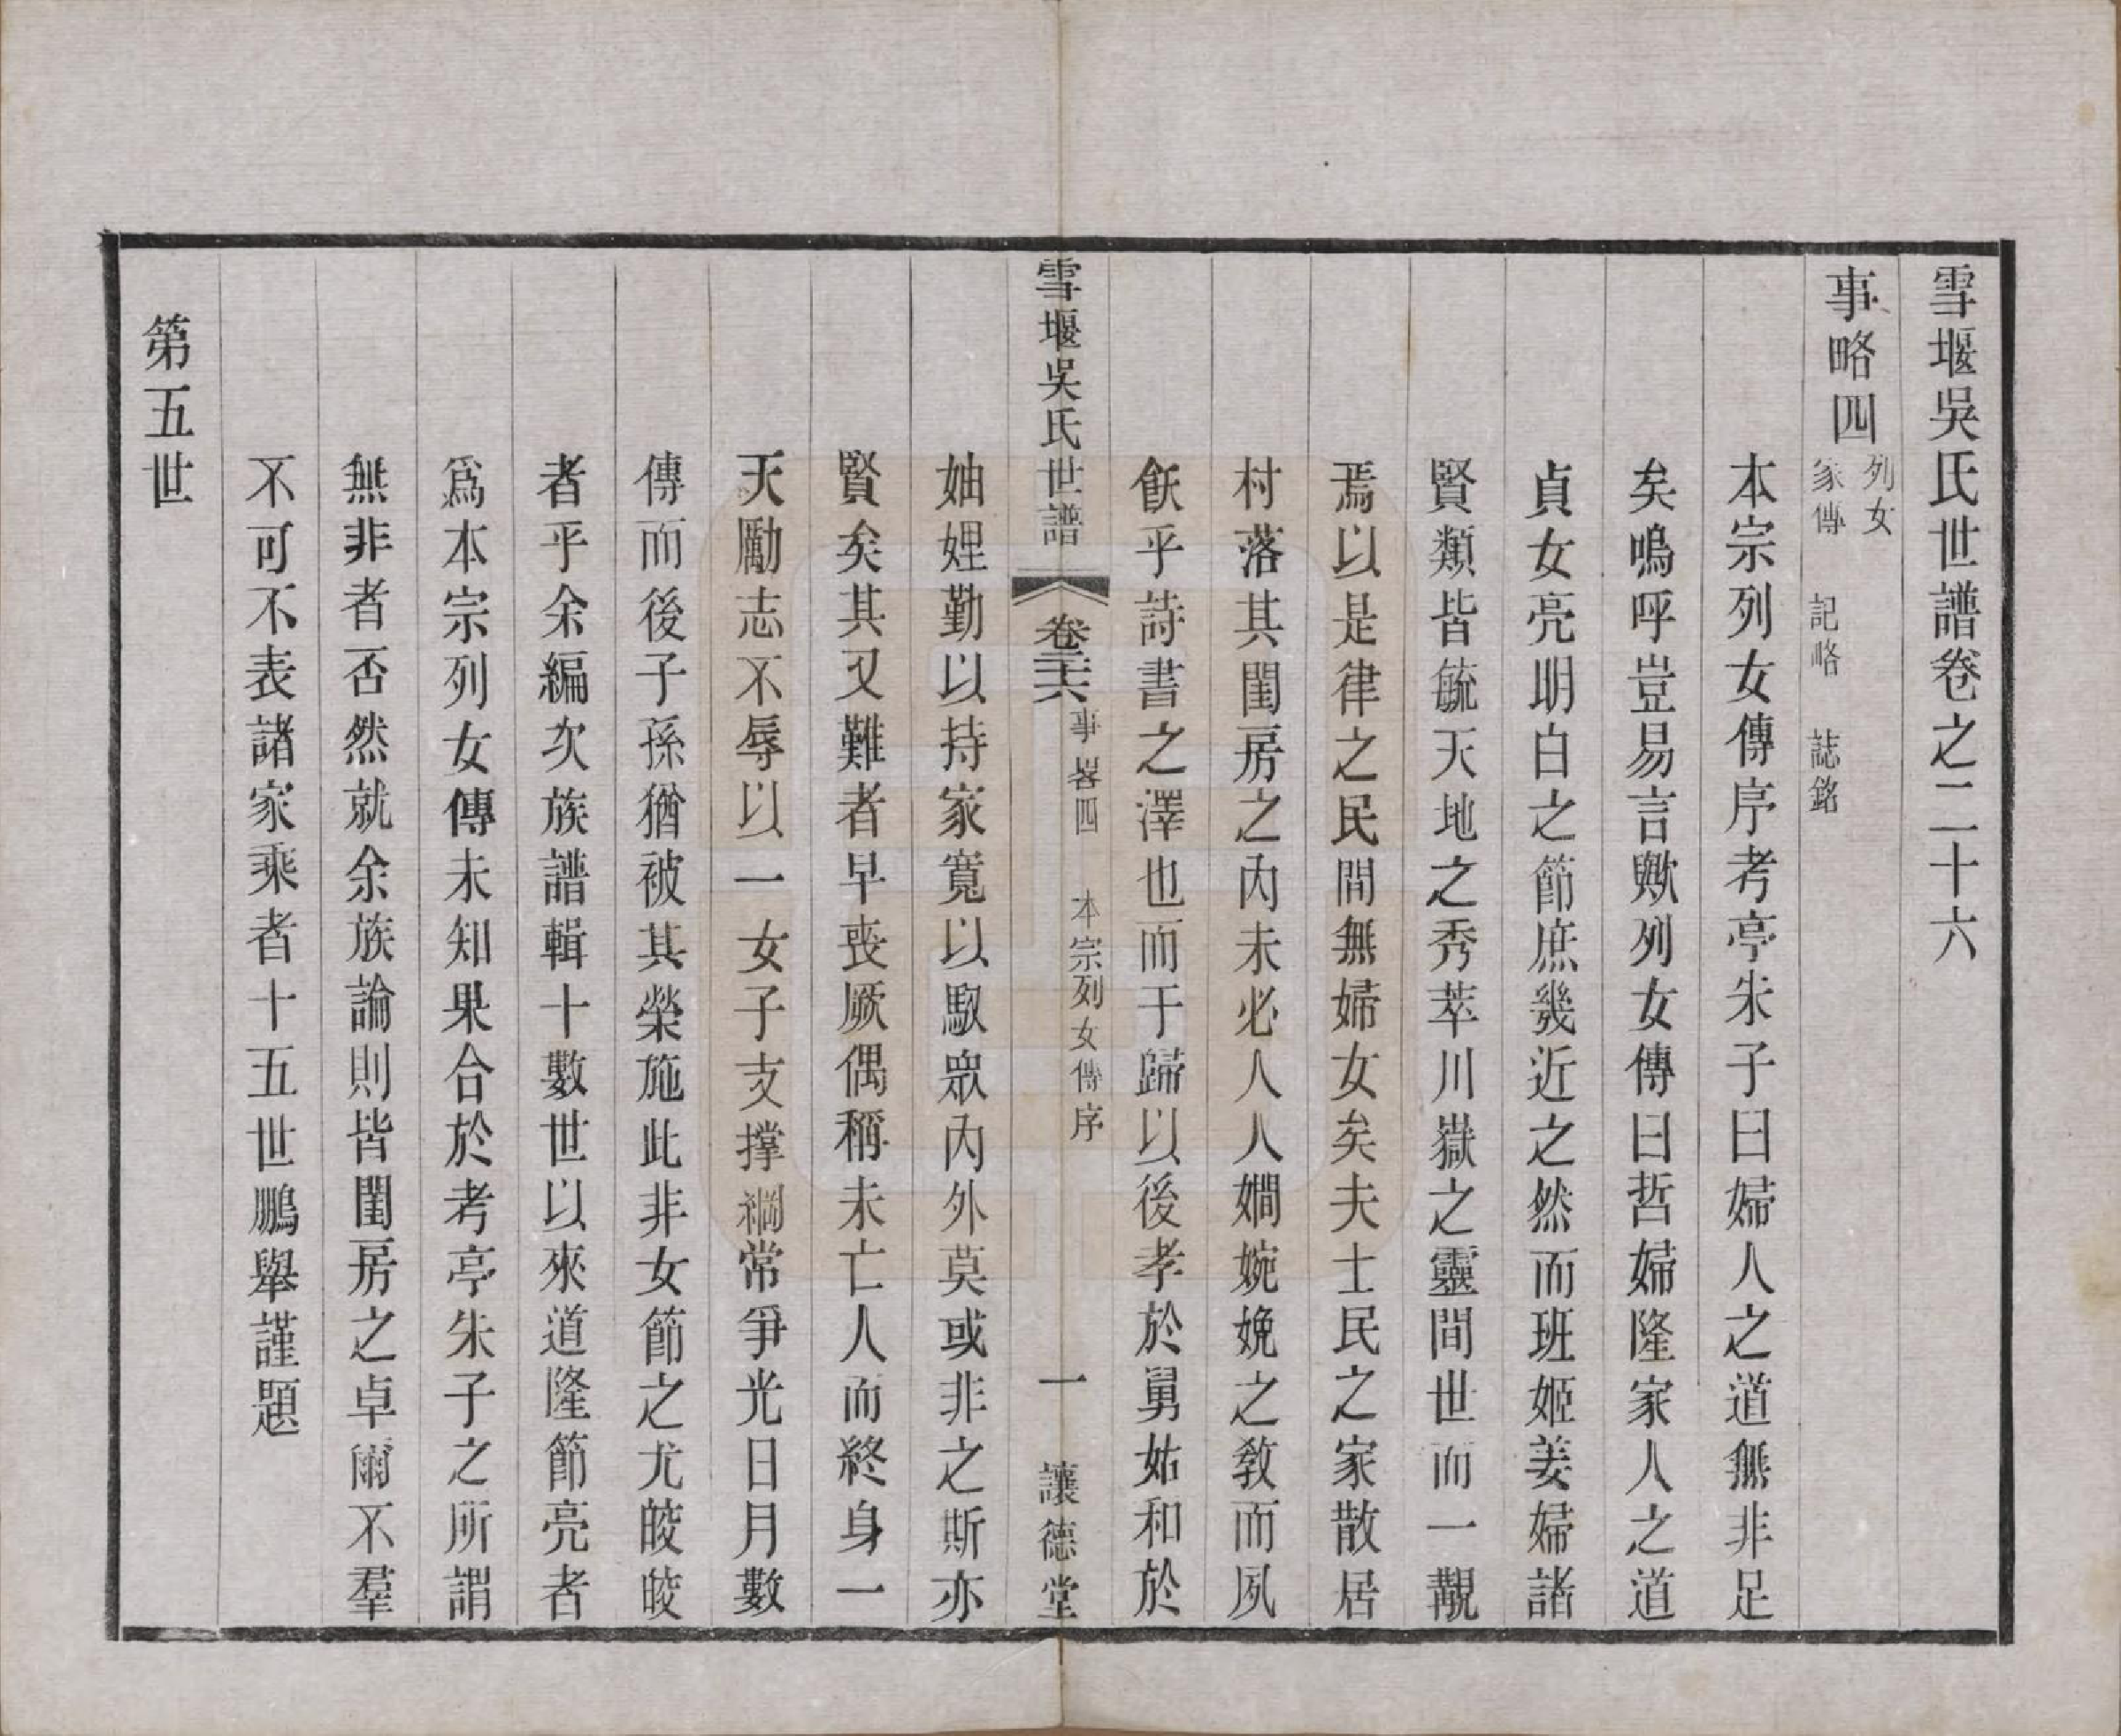 雪堰吳氏世譜卷之二十六
事略四 列女 家傳 記略 誌銘
本宗列女傳序考亭朱子曰婦人之道無非足
矣嗚呼豈易言歟列女傳曰哲婦隆家人之道
貞女亮明白之節庶幾近之然而班姬姜婦諸
賢類皆毓天地之秀萃川嶽之靈間世而一覯
焉以是律之民間無婦女矣夫士民之家散居
村落其閨房之內未必人人嫺婉娩之教而夙
飫乎詩書之澤也而于歸以後孝於舅姑和於
雪堰吳氏世譜 卷二十六 事畧四 本宗列女傳序 一 讓德堂
妯娌勤以持家寬以馭眾內外莫或非之斯亦
賢矣其又難者早喪厥偶稱未亡人而終身一
天勵志不辱以一女子支撐綱常爭光日月數
傳而後子孫猶被其榮施此非女節之尤皎皎
者乎余編次族譜輯十數世以來道隆節亮者
爲本宗列女傳未知果合於考亭朱子之所謂
無非者否然就余族論則皆閨房之卓爾不羣
不可不表諸家乘者十五世鵬舉謹題
第五世